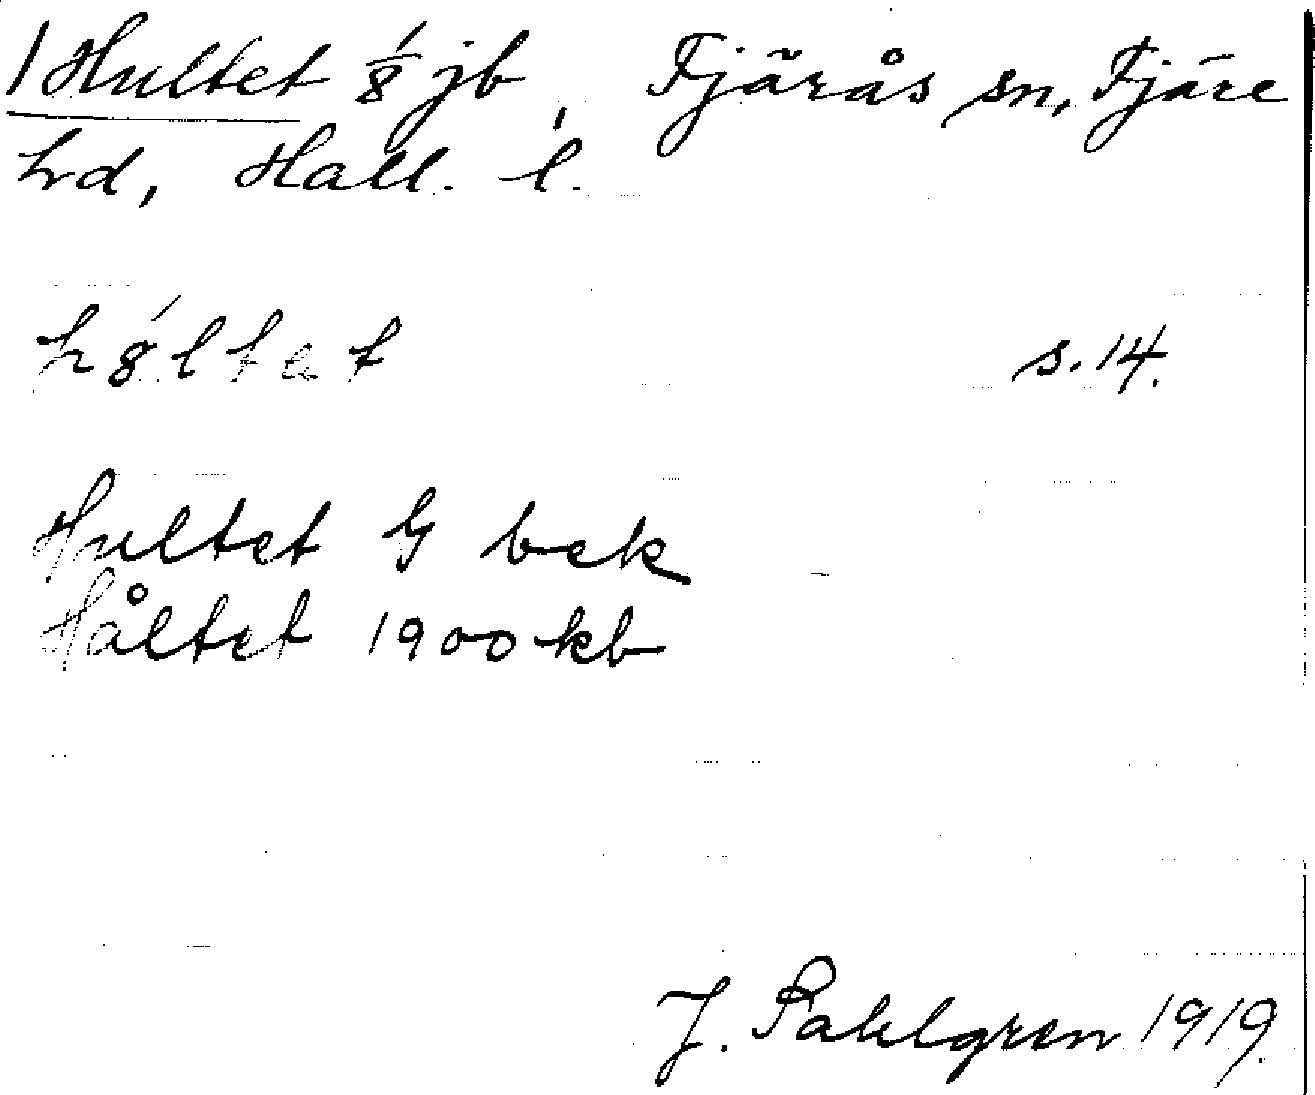 1 Hultet 1/8 jb, Fjärås sn, Fjäre
hd, Hall. l.
hɵ́ltet s. 14.
Hultet G bek
Håltet 1900 kb
J. Sahlgren 1919.